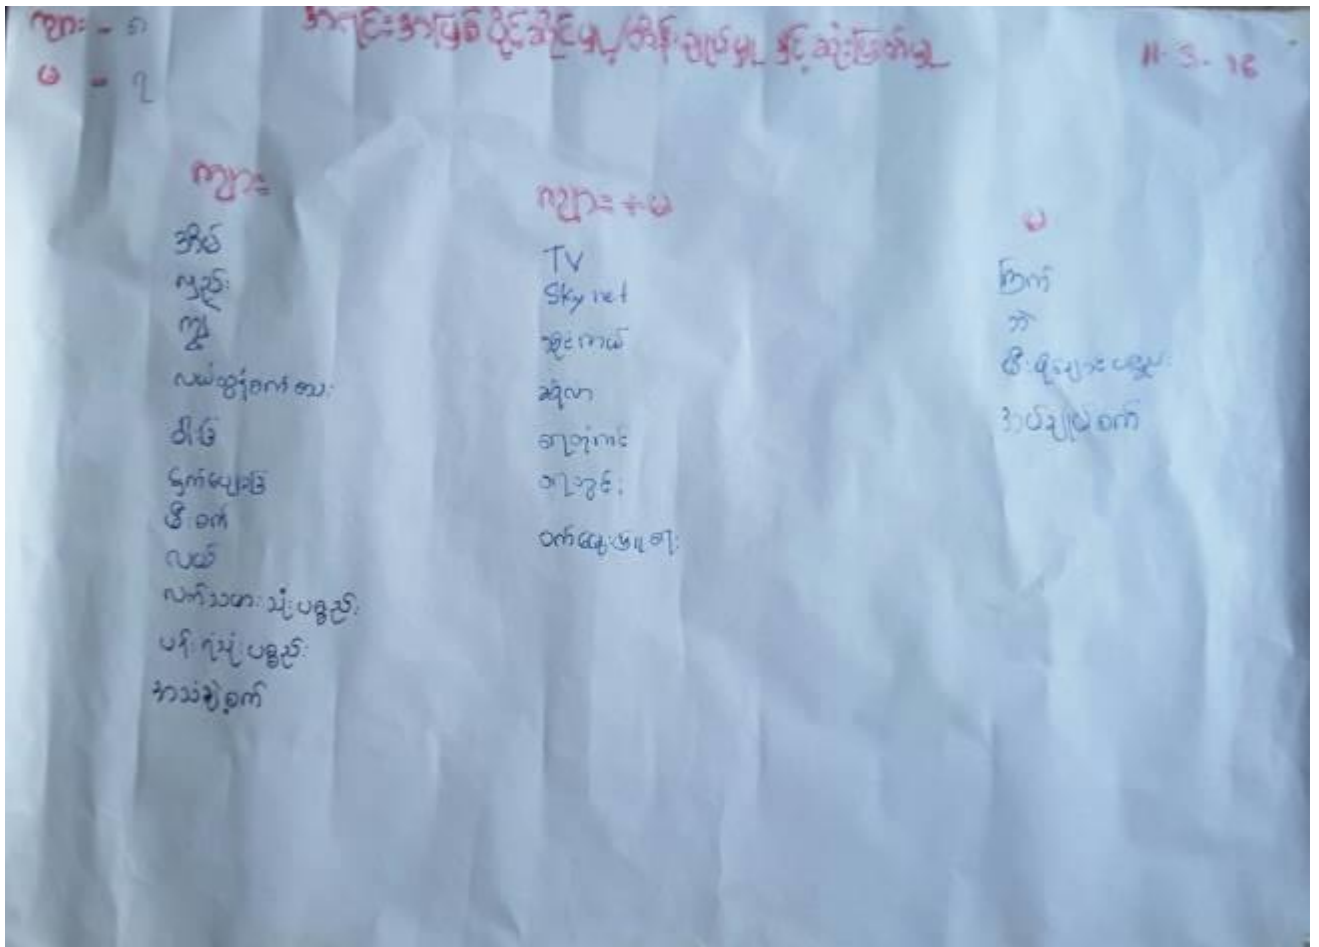 ကျား - ၈
အရင်းအမြစ်ပိုင်ဆိုင်မှု/ထိန်းချုပ်မှု နှင့် ဆုံးဖြတ်မှု
11-3-16
မ - ၇
ကျား
အိမ်
လှည်း
ကျွဲ
လယ်ထွန်စက်လေး
ဝါးခြံ
ငှက်ပျောခြံ
မီးစက်
လယ်
လက်သမားသုံးပစ္စည်း
ပန်းရံသုံးပစ္စည်း
အသံချဲ့စက်
ကျား + မ
TV
Sky net
ဆိုင်ကယ်
ဆိုလာ
ရေတိုင်ကင်
ရေတွင်း
ဝက်မွေးမြူရေး
မ
ကြက်
ဘဲ
မီးဖိုချောင်ပစ္စည်း
အပ်ချုပ်စက်